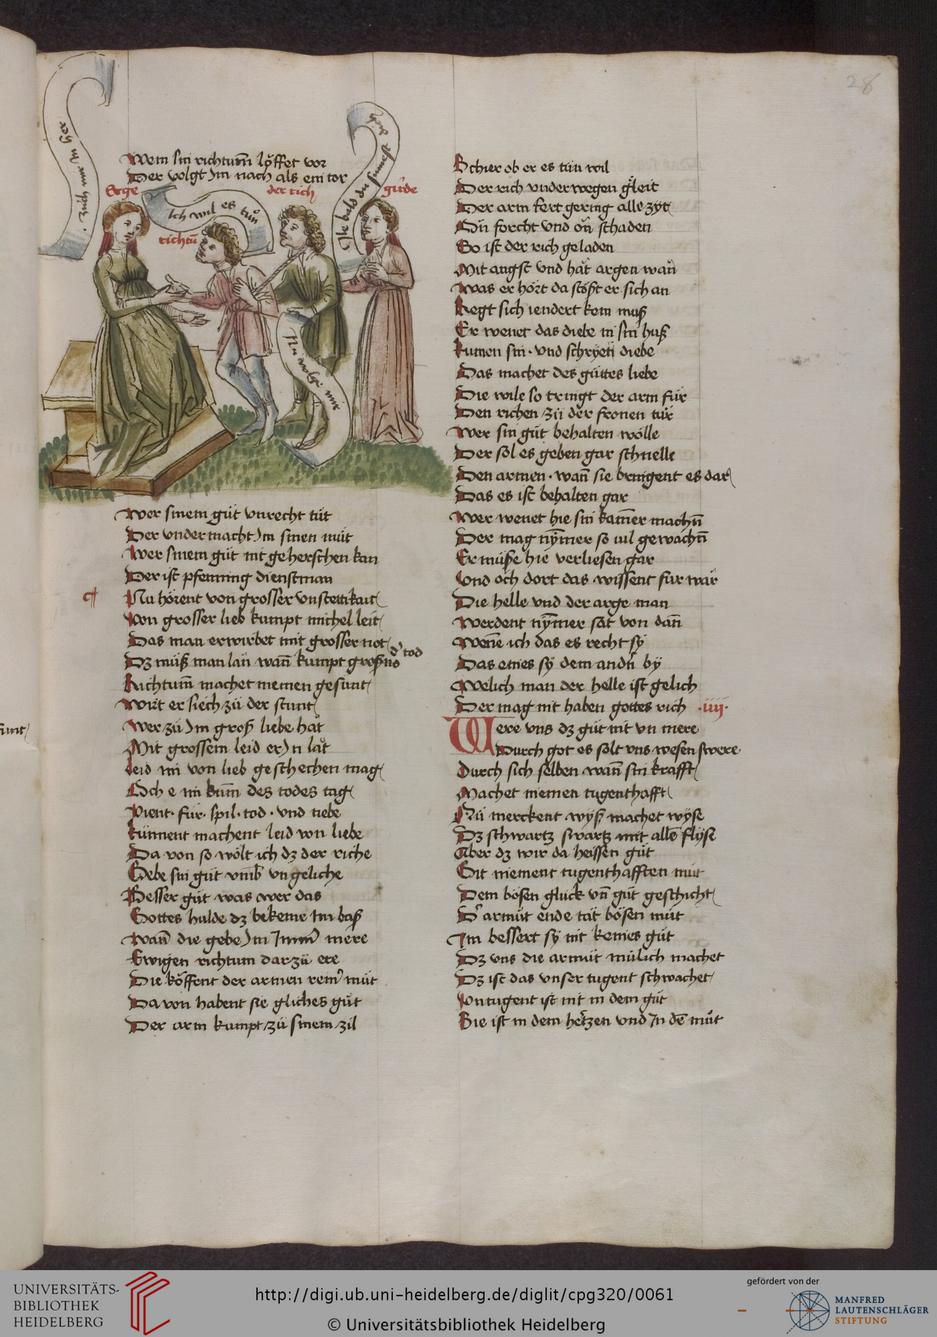 28
zuich mich her
Wem sin richtumm loͤffet vor
Der volgt Jm nach als ein tor
Erge
Ich wil es tuͦn
der rich
girde
richtuͦ
Nu volge mir
Wer sinem guͦt vnrecht tuͦt
Der vnder macht Jm sinen muͦt
Wer sinem guͦt nit geherschen kan
Der ist pfenning dienstman
Nu hoͤrent von grosser vnstettikait
Von grosser lieb kumpt michel leit
Das man erwirbet mit grosser not
Dz muͦß man lan wañ kumpt
d' tod
Richtumm machet niemen gesunt
Wirt er siech zuͦ der stunt
Wer zuͦ Jm groß liebe hat
Mit grossem leid er Jn lat
Leid im von lieb geschechen mag
Och e im kum des todes tag
Vient · für · spil · tod · vnd tiebe
Kuͤnnent machent leid von liebe
Da von so woͤlt ich dz der riche
Gebe sin guͦt vmb vngeliche
Besser guͦt was wer das
Gottes hulde dz bekeme Jm baß
Wañ die gebe Jm Jmm' mere
Ewigen richtum dar zuͦ ere
Die koͤffent der armen rein' muͦt
Da von habent sie gliches guͦt
Der arm kumpt zuͦ sinem zil
Schier ob er es tuͦn wil
Der rich vnderwegen gleit
Der arm fert gering alle zyt
On forcht vnd on schaden
So ist der rich geladen
Mit angst vnd hat argen wan
Was er hoͤrt da stoͤst er sich an
Regt sich iendert kein muß
Er wenet das diebe in sin huß
Kumen sin · vnd schryen diebe
Das machet des guͦttes liebe
Die wile so tringt der arm für
Den richen zuͦ der fronen tür
Wer sin guͦt behalten woͤlle
Der sol es geben gar schnelle
Den armen · wañ sie bringent es dar
Das es ist behalten gar
Wer wenet hie sin kamer machñ
Der mag nymer so vil gewachñ
Er muͤße hie verliesen gar
Vnd och dort das wissent für war
Die helle vnd der arge man
Werdent nymer sat von dañ
Wene ich das es recht sy
Das eines sy dem andn by
Welich man der helle ist gelich
Der mag nit haben gottes rich · iiij ·
Were vns dz guͦt nit vn mere
Durch got es solt vns wesen swere
Durch sich selben wañ sin krafft
Machet niemen tugenthafft
Nu merckent wyß machet wyse
Dz schwartz swartz mit alle flyse
Aber dz wir da heissen guͦt
Git niement tugenthafften muͦt
Dem boͤsen gluck vñ guͦt geschicht
D' armuͦt ende tuͦt boͤsen muͦt
Jm bessert sy nit keines guͦt
Dz vns die armuͦt muͤlich machet
Dz ist das vnser tugent schwachet
Vntugent ist nit in dem guͦt
Sie ist in dem hertzen vnd Jn dẽ muͦt
UNIVERSITÄTS-
BIBLIOTHEK
HEIDELBERG
http://digi.ub.uni-heidelberg.de/diglit/cpg320/0061
© Universitätsbibliothek Heidelberg
gefördert von der
MANFRED
LAUTENSCHLÄGER
STIFTUNG